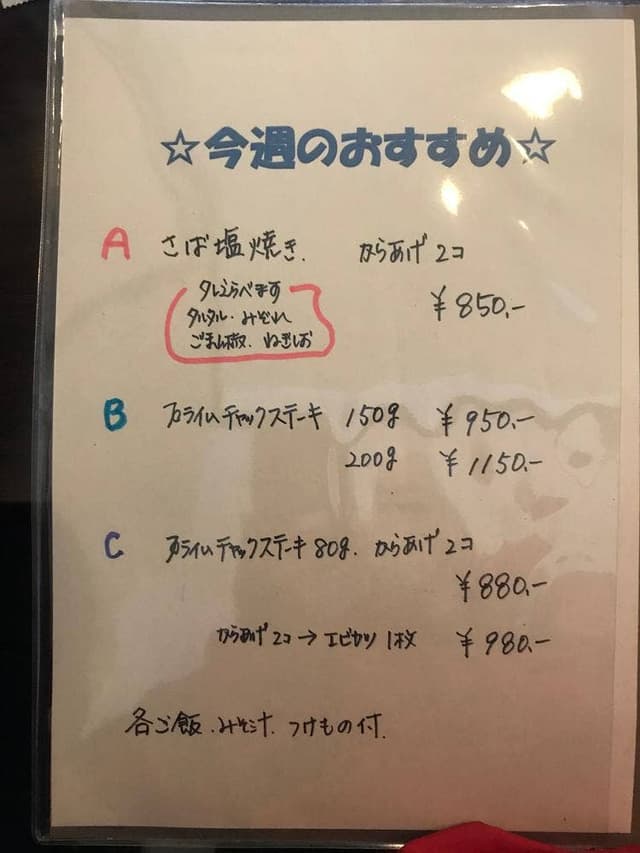 ☆今週のおすすめ☆
A さば塩焼き. からあげ2コ
¥850,-
タレえらべます
タルタル・みぞれ
ごま山椒. ねぎしお
B プライムチャックステーキ 150g ¥950,-
200g ¥1150,-
C プライムチャックステーキ80g. からあげ2コ
¥880,-
からあげ2コ→エビカツ1枚 ¥980,-
各ご飯.みそ汁.つけもの付.